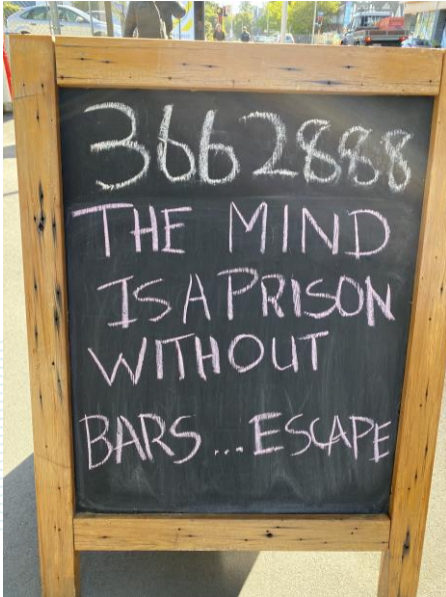 3662888
THE MIND
IS A PRISON
WITHOUT
BARS...ESCAPE